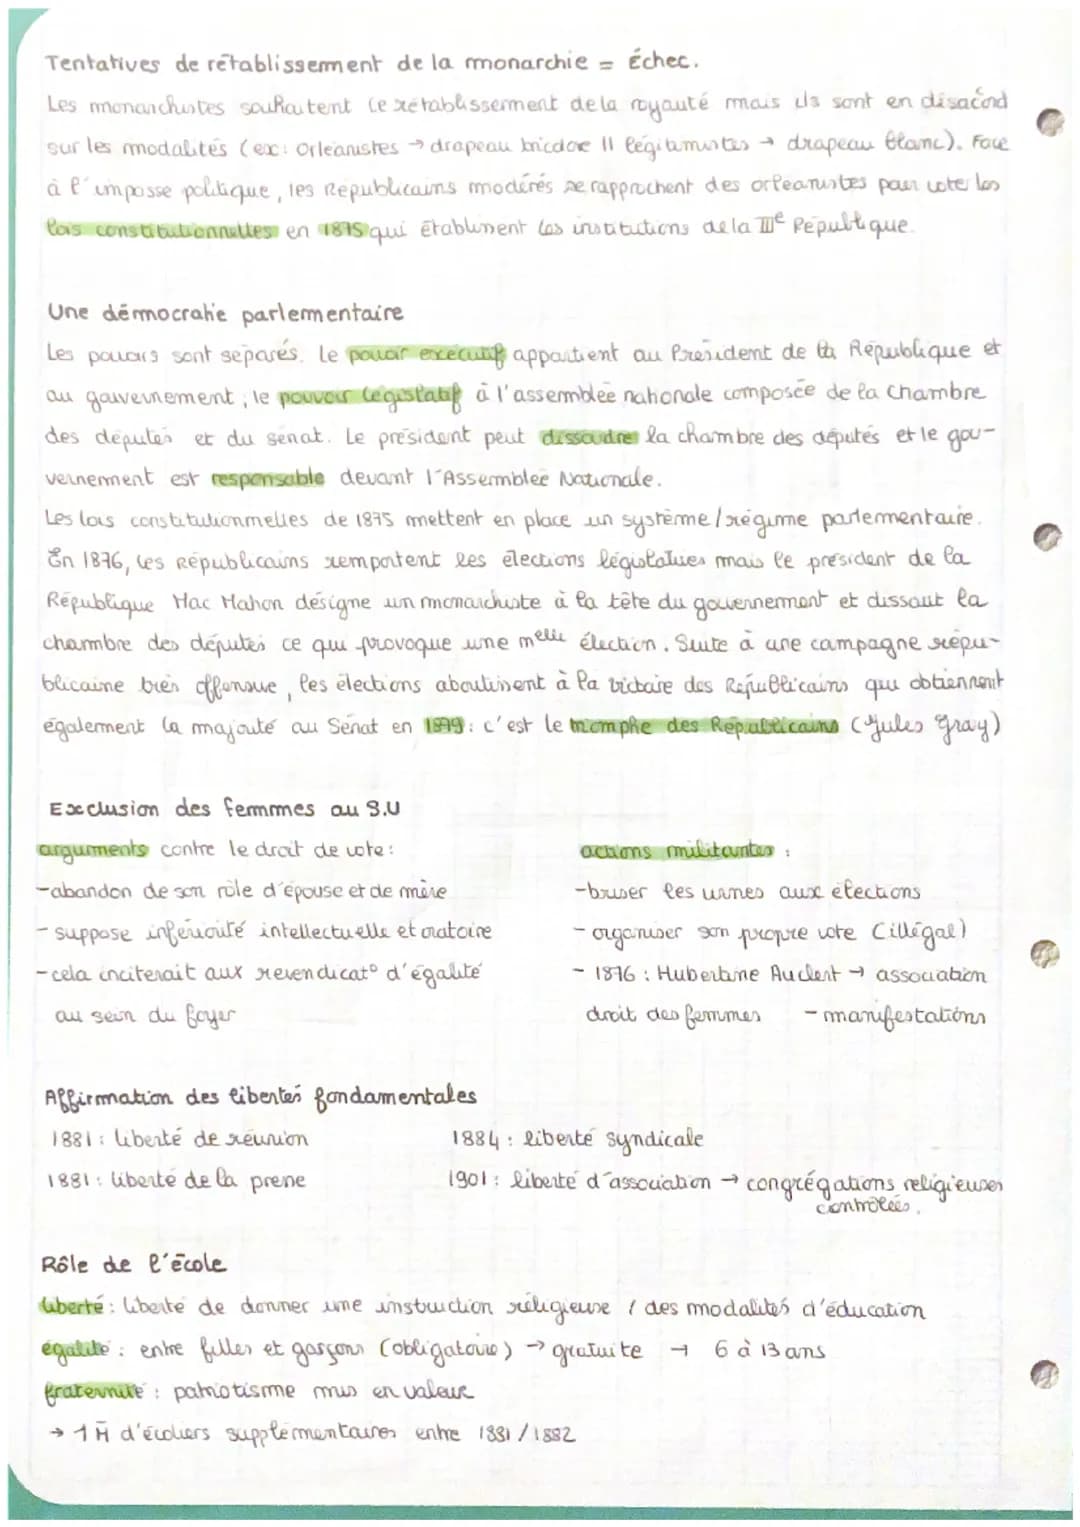 Tentatives de rétablissement de la monarchie = Échec.
Les monarchistes souhaitent le rétablissement de la royauté mais ils sont en désacord
sur les modalités (ex: Orléanistes → drapeau tricolore || légitimistes → drapeau blanc). Face
à l'impasse politique, les Républicains modérés se rapprochent des orléanistes pour voter les
lois constitutionnelles en 1875 qui établissent les institutions de la IIIe République.
Une démocratie parlementaire
Les pouvoirs sont séparés. Le pouvoir exécutif appartient au Président de la République et
au gouvernement, le pouvoir législatif à l'assemblée nationale composée de la Chambre
des députés et du sénat. Le président peut dissoudre la chambre des députés et le gou-
vernement est responsable devant l'Assemblée Nationale.
Les lois constitutionnelles de 1875 mettent en place un système/régime parlementaire.
En 1876, les Républicains remportent les élections législatives mais le président de la
République Mac Mahon désigne un monarchiste à la tête du gouvernement et dissout la
chambre des députés ce qui provoque une nelle élection. Suite à une campagne répu-
blicaine très offensive, les élections aboutissent à la victoire des Républicains qui obtiennent
également la majorité au Sénat en 1879 : c'est le triomphe des Républicains (Jules Gray)
Exclusion des femmes au S.U
arguments contre le droit de vote :
-abandon de son rôle d'épouse et de mère
- suppose infériorité intellectuelle et oratoire
- cela inciterait aux revendicat° d'égalité
au sein du foyer
actions militantes :
-briser les urnes aux élections
- organiser son propre vote (illégal)
- 1876 : Hubertine Auclert → association
droit des femmes - manifestations
Affirmation des libertés fondamentales
1881 : liberté de réunion
1881 : liberté de la presse
1884 : liberté syndicale
1901 : liberté d'association → congrégations religieuses
contrôlées.
Rôle de l'école
liberté : liberté de donner une instruction religieuse / des modalités d'éducation
égalité : entre filles et garçons (obligatoire) → gratuite → 6 à 13 ans
fraternité : patriotisme mis en valeur
→ 1 M d'écoliers supplémentaires entre 1881/1882